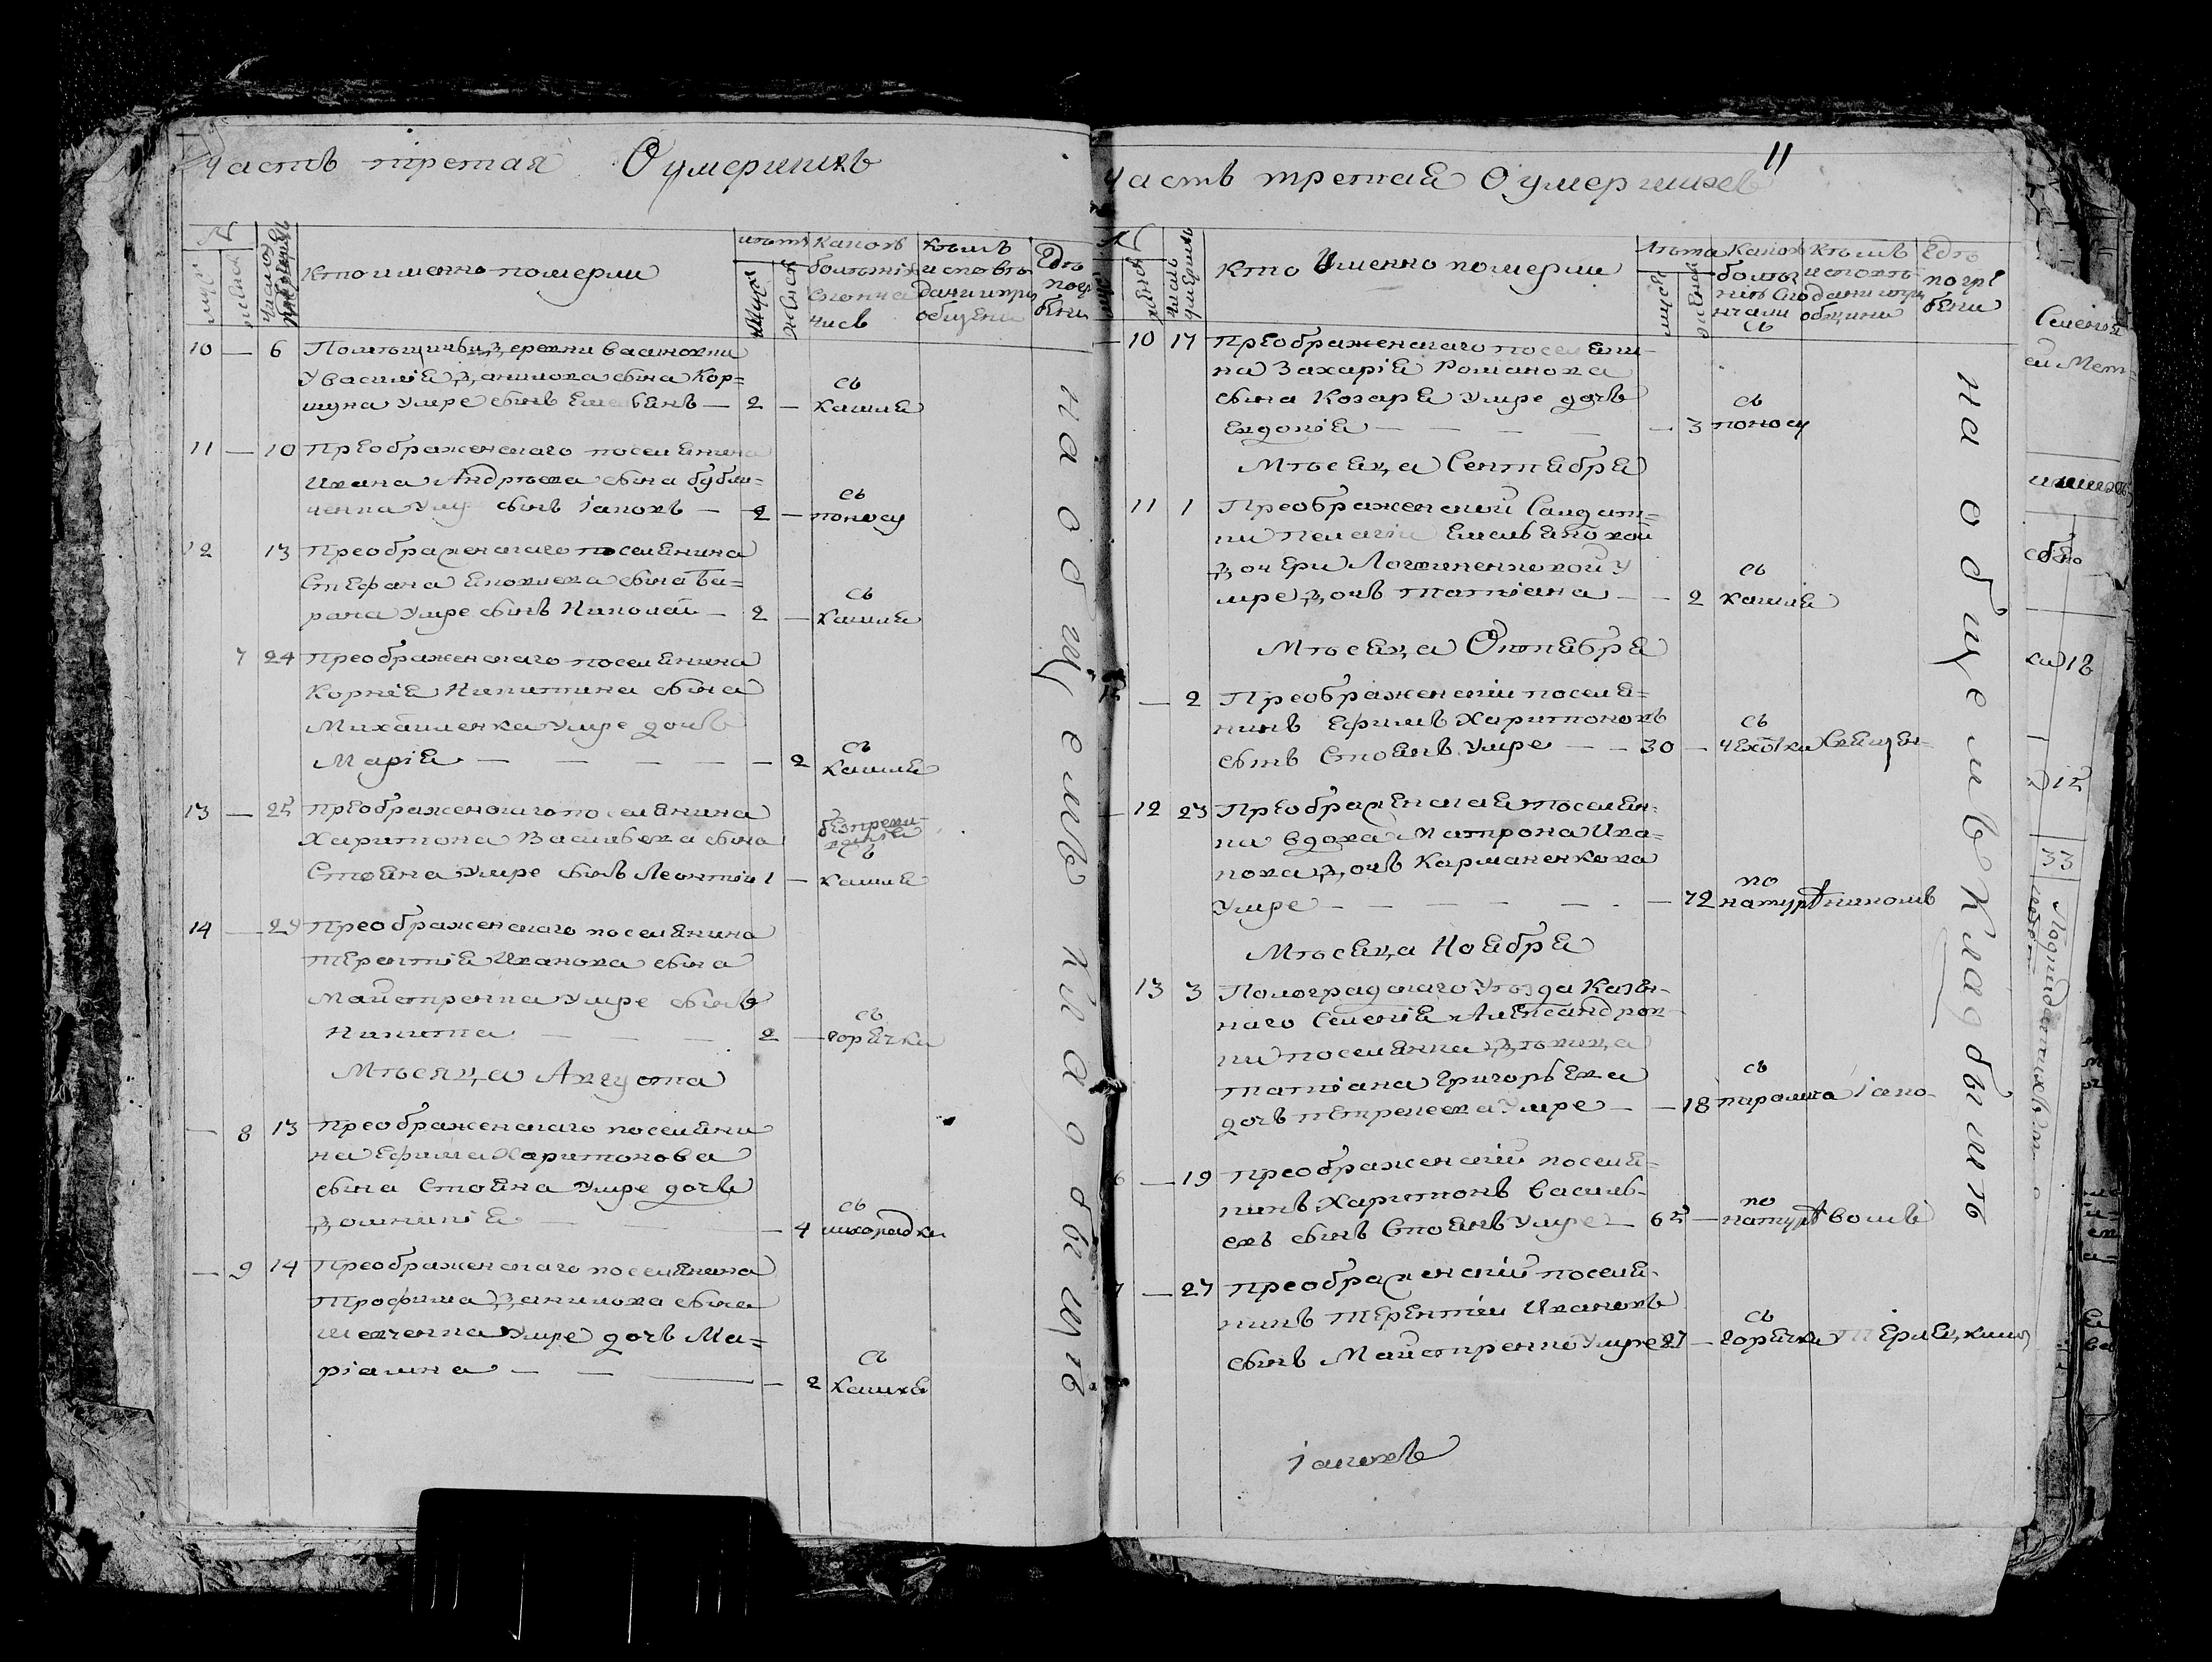 Часть третая О умершихъ
№
Числа умершихъ
мужеск
женск
Кто именно померли
лѣта
мужеск
женска
Какою
болѣзнію
сконча
лись
Кѣмъ
исповѣ
дани и прі
общени
Гдѣ
погре
бени
10 — 6 Помѣщицы Деревни васиновки
У василія данилова сына Кор=
шуна Умре сынъ Емельянъ — 2 — съ кашля
11 — 10 Преображенскаго поселянина
Ивана Андрѣева сына бубли=
ченка Умре сынъ Іаковъ — 2 — съ поносу
12 13 Преображенскаго поселянина
Стефана Яковлева сына Ба=
рана Умре сынъ Николай — 2 — съ кашля
7 24 Преображенскаго поселянина
Корнія Никитина сына
Михайленка Умре дочь
Марія — — — — — 2 съ кашля
13 — 25 Преображенскаго поселянина
Харитона Васильева сына
Стояна Умре сынъ Леонтій 1 — съ кашля
14 — 29 Преображенскаго поселянина
Терентія Иванова сына
Майстренка Умре сынъ
Никита — — — 2 — съ горячки
Мѣсяца Августа
— 8 13 Преображенскаго поселяни
на Ефима Харитонова
сына Стояна Умре дочь
Домникія — — — 4 съ лихорадки
— 9 14 Преображенскаго поселянина
Трофима Данилова сына
Шевченка Умре дочь Ма=
ріамна — — — — 2 съ кашля
на общемъ кладбищѣ
11
Часть третая О умершихъ
№
мужс
женск
Числа умершихъ
Кто Именно померли
Лѣта
мужеск
женска
Какою
болѣз
нію ско
нчали
сь
Кѣмъ
исповѣ
дани и прі
общени
Гдѣ
погре
бени
— 10 17 Преображенскаго поселяни=
на Захарія Романова
сына Козаря Умре дочь
Евдокія — — — — — 3 съ поносу
Мѣсяца Сентября
11 1 Преображенской Салдат=
ки Пелагіи Емельяновой
Дочери Логвиненковой У
мре Дочь Татіана — — 2 съ кашля
Мѣсяца Октября
15 — 2 Преображенскій поселя=
нинъ Ефимъ Харитоновъ
сынъ Стоянъ Умре — — 30 — съ чехотки Священ-
— 12 23 Преображенская поселян=
ка вдова Матрона Ива=
нова Дочь Карманенкова
Умре — — — — — — 72 по натурѣ никомъ
Мѣсяца Ноября
13 3 Павоградскаго Уѣзда Казен=
наго Селенія Александров=
ки поселянка Дѣвица
Татіана Григорьева
дочь Петренкова Умре — — 18 съ паралича Іако-
6 — 19 Преображенскій поселя=
нинъ Харитонъ Василь-
евъ сынъ Стоянъ Умре — 65 — по натурѣ вомъ
7 — 27 Преображенскій поселя-
нинъ Терентій Ивановъ
сынъ Майстренко Умре 27 — съ горячки
на общемъ кладбищѣ
Іаковъ
Селенія
12
15
33